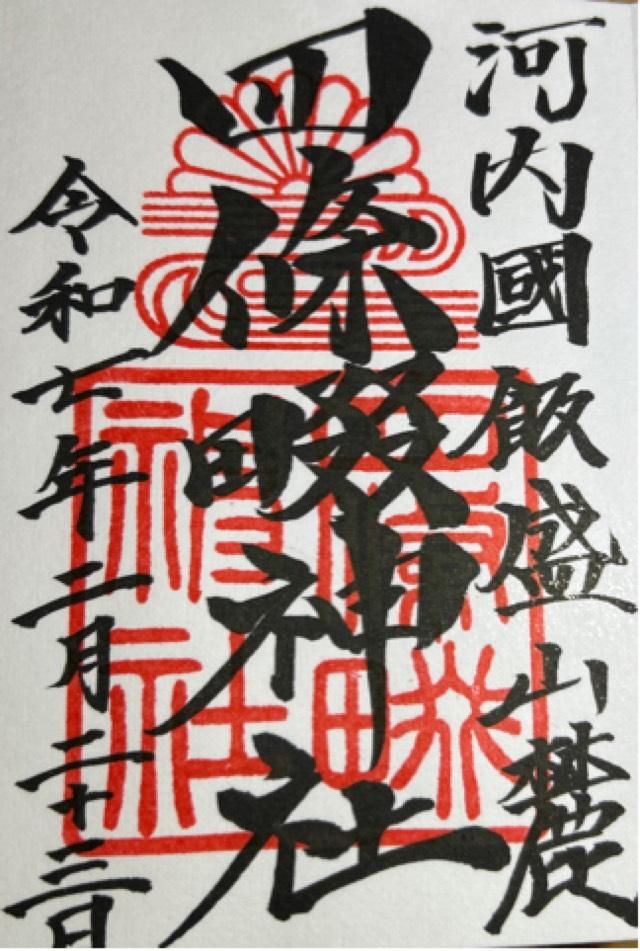 河内國飯盛山麓
四條畷神社
令和七年二月二十三日
四條畷
神社